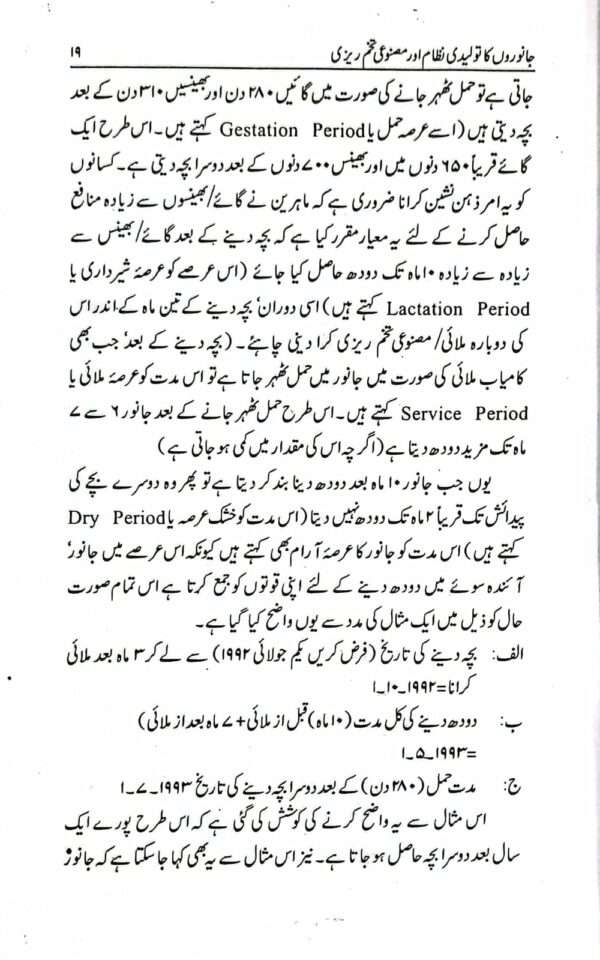 جانوروں کا تولیدی نظام اور مصنوعی تخم ریزی ۱۹
جاتی ہے تو حمل ٹھہر جانے کی صورت میں گائیں ۲۸۰ دن اور بھینسیں ۳۱۰ دن کے بعد
بچہ دیتی ہیں (اسے عرصہ حمل یا Gestation Period کہتے ہیں۔ اس طرح ایک
گائے قریباً ۶۵۰ دنوں میں اور بھینس ۷۰۰ دنوں کے بعد دوسرا بچہ دیتی ہے۔ کسانوں
کو یہ امر ذہن نشین کرانا ضروری ہے کہ ماہرین نے گائے/بھینسوں سے زیادہ منافع
حاصل کرنے کے لئے یہ معیار مقرر کیا ہے کہ بچہ دینے کے بعد گائے/بھینس سے
زیادہ سے زیادہ ۱۰ ماہ تک دودھ حاصل کیا جائے (اس عرصے کو عرصۂ شیرداری یا
Lactation Period کہتے ہیں) اسی دوران' بچہ دینے کے تین ماہ کے اندر اس
کی دوبارہ ملائی/مصنوعی تخم ریزی کرا دینی چاہئے۔ (بچہ دینے کے بعد' جب بھی
کامیاب ملائی کی صورت میں جانور میں حمل ٹھہر جاتا ہے تو اس مدت کو عرصۂ ملائی یا
Service Period کہتے ہیں۔ اس طرح حمل ٹھہر جانے کے بعد جانور ۶ سے ۷
ماہ تک مزید دودھ دیتا ہے (اگرچہ اس کی مقدار میں کمی ہو جاتی ہے)
یوں جب جانور ۱۰ ماہ بعد دودھ دینا بند کر دیتا ہے تو پھر وہ دوسرے بچے کی
پیدائش تک قریباً ۲ ماہ تک دودھ نہیں دیتا (اس مدت کو خشک عرصہ یا Dry Period
کہتے ہیں) اس مدت کو جانور کا عرصۂ آرام بھی کہتے ہیں کیونکہ اس عرصے میں جانور'
آئندہ سوئے میں دودھ دینے کے لئے اپنی قوتوں کو جمع کرتا ہے اس تمام صورت
حال کو ذیل میں ایک مثال کی مدد سے یوں واضح کیا گیا ہے۔
الف: بچہ دینے کی تاریخ (فرض کریں یکم جولائی ۱۹۹۲) سے لے کر ۳ ماہ بعد ملائی
کرانا=۱۹۹۲-۱۰-۱
ب: دودھ دینے کی کل مدت (۱۰ ماہ) قبل از ملائی + ۷ ماہ بعد از ملائی)
=۱۹۹۳-۵-۱
ج: مدت حمل (۲۸۰ دن) کے بعد دوسرا بچہ دینے کی تاریخ ۱۹۹۳-۷-۱
اس مثال سے یہ واضح کرنے کی کوشش کی گئی ہے کہ اس طرح پورے ایک
سال بعد دوسرا بچہ حاصل ہو جاتا ہے۔ نیز اس مثال سے یہ بھی کہا جا سکتا ہے کہ جانور'